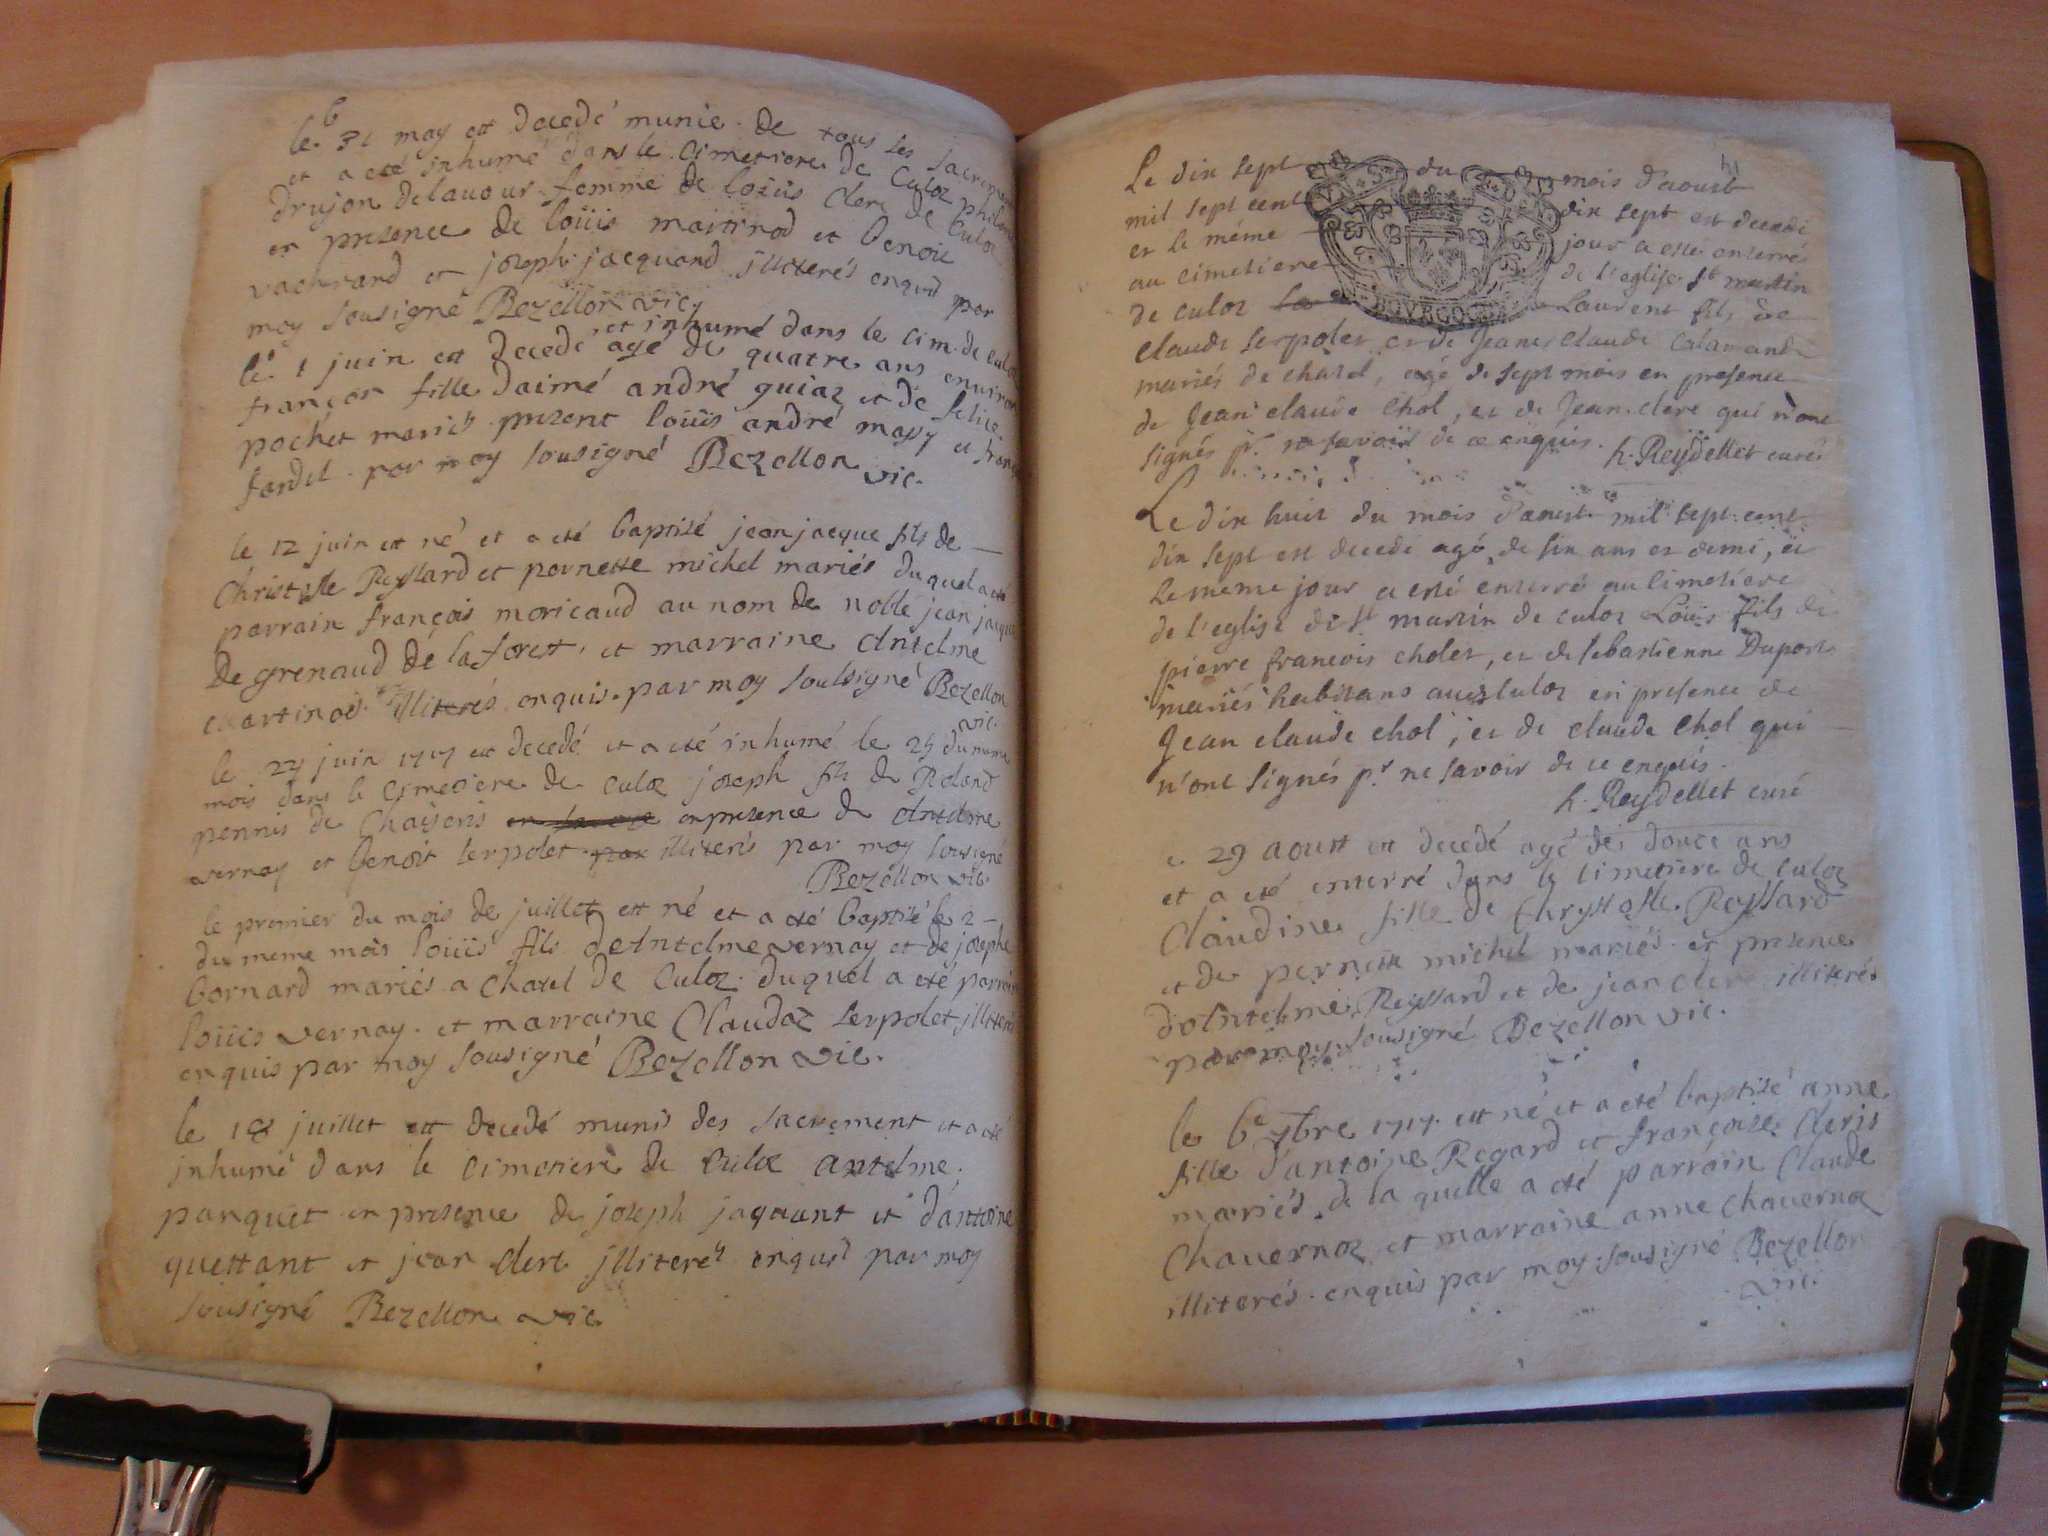 le 31 may est decedé munie de tous les sacremen
et a eté inhumé dans le cimetiere de Culoz
drujon delauour femme de loüis clerc de Culoz
en presence de loüis martinod et benoit
et joseph jacquand illiterés enquis par
moy sousigné Bezellon vic
le 1 juin est decedé et inhumé dans le cim. de culoz
agé de quatre ans environ
françon fille daimé andré guiaz et de felice
pochet mariés present loüis andré massy et
fardel par moy sousigné Bezellon vic.
le 12 juin est né et a eté baptisé jean jacque fils de
Christofle Reyssard et pernette michel mariés duquel a eté
parrain françois moricaud au nom de noble jean jacque
De grenaud de la forest, et marraine Antelme
martinod illiterés enquis par moy soussigné Bezellon
vic.
le 24 juin 1717 est decedé et a eté inhumé le 25 du meme
mois dans le cimetiere de culoz joseph fils de Roland
pennis de en presence de Antelme
vernay et benoit serpolet illiterés par moy sousigné
Bezellon vic.
le premier du mois de juillet est né et a eté baptisé le 2
du meme mois loüis fils de Antelme vernay et de josephe
bornard mariés a chatel de Culoz duquel a eté parrain
loüis vernay et marraine Claudaz serpolet illiterés
enquis par moy sousigné Bezellon vic.
le 18 juillet est decedé munis des sacrement et a eté
inhumé dans le cimetiere de culoz antelme
panquet en presence de joseph jaquant et dantoine
quettant et jean clert illiterés enquis par moy
sousigné Bezellon vic
Le dix sept du mois d'aoust
mil sept cent dix sept est decedé
et le méme jour a esté enterré
au cimetiere de l'eglise st martin
de culoz Laurent fils de
BOVRGOG
Claude serpolet et de Jeanne Claude Calamand
mariés de chatel, agé de sept mois en presence
de Jean claude Chol, et de Jean clerc qui n'ont
signés pr. ne savoir de ce enquis. h. Reydellet curé
Le dix huit du mois d'aoust mil sept cent
dix sept est decedé agé de six ans et demi, et
le meme jour a esté enterré au cimetiere
de l'eglise de st martin de culoz Loüis fils de
pierre francois cholet, et de sebastienne Duport
mariés habitans audit culoz en presence de
Jean claude chol, et de claude Chol qui
n'ont signés pr ne savoir de ce enquis.
h. Reydellet curé
29 aoust est decedé agé de douce ans
et a eté enterré dans le cimetiere de culoz
Claudine fille de Chrystofle Reyssard
et de pernette michel mariés en presence
d'Antelme Reyssard et de jean clerc illiterés
par moy sousigné Bezellon vic.
le 6e 7bre 1717 est né et a eté baptisé anne
fille d'antoine Regard et françoise cleris
mariés de la quelle a eté parrain Claude
Chauernoz et marraine anne chauernoz
illiterés enquis par moy sousigné Bezellon
vic.